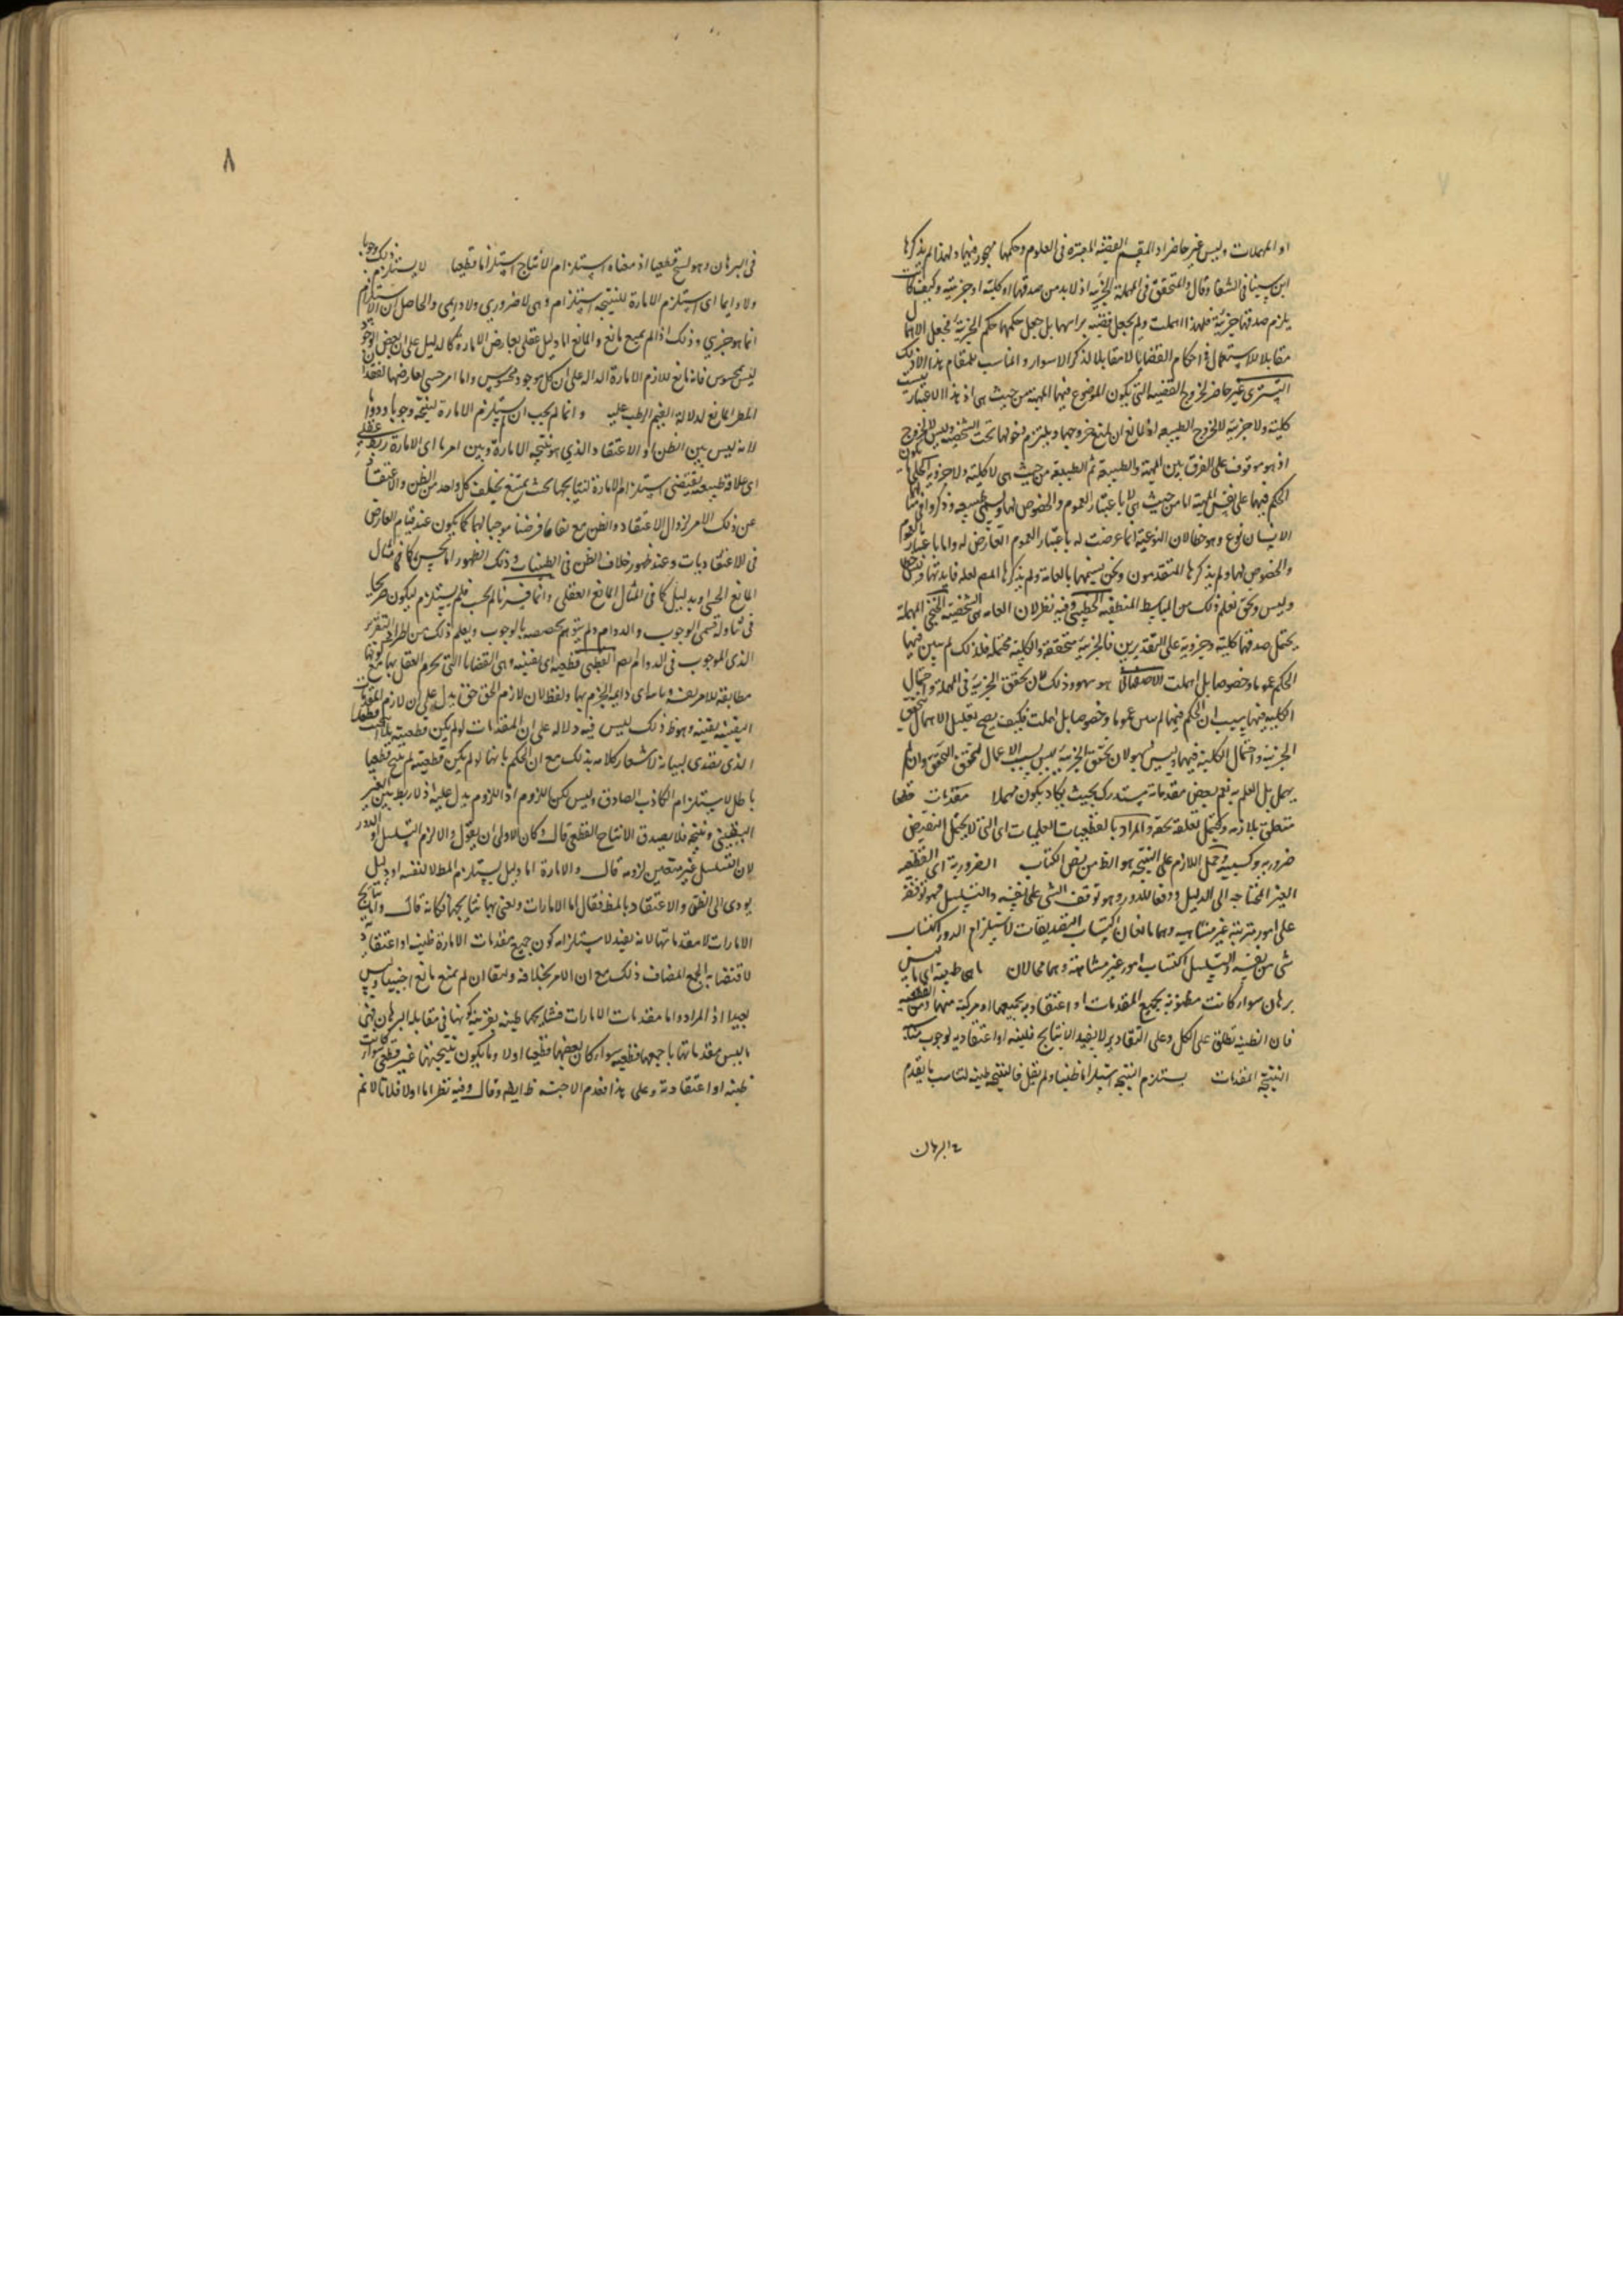 او المهملات وليس غير حاضر اذ المقسم القضية المعتبرة في العلوم وحكمها مهجور فيها ولهذا لم يذكرها
ابن سينا في الشفا وقال والمتحقق في المهملة الجزئية اذ لا بد من صدقها او كلية او جزئية وكيف كانت
يلزم صدقها جزئية فلهذا اهملت ولم يجعل قضية براسها بل جعل حكمها حكم الجزئية فجعل الاهمال
مقابلا للاستعمال في احكام القضايا لا مقابلا لذكر الاسوار والمناسب للمقام هذا لا ذلك
التستري غير حاضر لخروج القضية التي يكون الموضوع فيها المهية من حيث هي اذ هذا الاعتبار ليست
كلية ولا جزئية لا لخروج الطبيعة اذ للمانع ان يمنع خروجها ويلتزم دخولها تحت الشخصية وليس لا لخروج
اذ هو موقوف على الفرق بين المهية والطبيعة ثم الطبيعة من حيث هي لا كلية ولا جزوية
الحكم فيها على نفس المهية اما من حيث هي لا باعتبار العموم والخصوص لها وتسمى طبيعية وذكروا في مثالها
الانسان نوع وهو خطا لان النوعية انما عرضت له باعتبار العموم العارض له واما باعتبار العموم
والخصوص لها ولم يذكرها المتقدمون ونحن نسميها بالعامة ولم يذكرها المص لعله فايدتها
وليس ونحن نعلم ذلك من البسايط المنطقية الخطيبي وفيه نظر لان العامة هي الشخصية المهملة
يحتمل صدقها كلية وجزوية على التقديرين فالجزئية متحققة والكلية محتملة فلذلك لم يبين فيها
الحكم عموما وخصوصا بل اهملت الاصفهاني هو سهو وذلك لان تحقق الجزئية في المهملة واحتمال
الكلية فيها بسبب ان الحكم فيها لم يبين عموما وخصوصا بل اهملت فكيف يصح تعليل الاهمال بتحقق
الجزئية واحتمال الكلية فيها وليس بسهو لان تحقق الجزئية ليس بسبب الاهمال لتحقق التحقق وان لم
يهمل بل للعلم به نعم بعض مقدماته مستدرك بحيث يكاد يكون مهملا مقدمات قطعا
متعلق بلازمه ويحتمل تعلقه بحقه والمراد بالقطعيات العلميات اي التي لا يحتمل النقيض
ضرورية وكسبية وحمل اللازم على النتيجة هو الظ من نص الكتاب الضرورية اي القطعية
الغير المحتاجة الى الدليل ودفعا للدور وهو توقف الشي على نفسه والتسلسل فهو توقفه
على امور مترتبة غير متناهية وهما مانعان اكتساب التصديقات لاستلزام الدور اكتساب
شي من نفسه والتسلسل اكتساب امور غير متناهية وهما محالان ما هي ظنية اي ما ليس
برهان سواء كانت مظنونة بجميع المقدمات او اعتقادية بجميعها او مركبة منهما ومن القطعية
فان الظنية تطلق على الكل وعلى التقادير لا يفيد الانتايج ظنية او اعتقادية لوجوب
النتيجة المقدمات يستلزم النتيجة استلزاما ظنيا ولم يقل فالنتيجة ظنية لتناسب ما تقدم
في البرهان
٨
في البرهان وهو لنتج قطعيا اذ معناه استلزام الانتاج استلزاما قطعيا لا يستلزم ذلك وجوبا
ولا دايما اي استلزام الامارة للنتيجة استلزام وهي لا ضروري ولا دايمي والحاصل ان الاستلزام
انما هو جزيي وذلك اذا لم يمنع مانع والمانع اما دليل عقلي يعارض الامارة كالدليل على ان بعض الموجود
ليس بمحسوس فانه مانع للازم الامارة الدالة على ان كل موجود محسوس واما امر حسي يعارضها كفقدان
المطر المانع لدلالة الغيم الرطب عليه وانما لم يجب ان يستلزم الامارة لنتيجة وجوبا ودواما
لانه ليس بين الظن او الاعتقاد الذي هو نتيجة الامارة وبين امر ما اي الامارة ربط عقلي
اي علاقة طبيعية يقتضي استلزام الامارة لنتايجها بحيث يمتنع تخلف كل واحد من الظن والاعتقاد
عن ذلك الامر لزوال الاعتقاد والظن مع بقاء ما فرضنا موجبا لهما كما يكون عند قيام المعارض
في الاعتقاديات وعند ظهور خلاف الظن في الظنيات وذلك الظهور اما بحس كما في مثال
المانع الحسي او بدليل كما في المثال المانع العقلي وانما فسرنا لم يجب فلم يستلزم ليكون صريحا
في تناوله قسمي الوجوب والدوام ولم يتوهم تخصيصه بالوجوب ويعلم ذلك من اطراد التقرير
الذي للوجوب في الدوام القطبي قطعية اي يقينية وهي القضايا التي يجزم العقل بها مع كونها
مطابقة للامر نفسه وثابتا اي دايمة الجزم بها ولفظ لان لازم الحق حق يدل على ان لازم المقدمات
اليقينية يقينية وهو ظ ذلك ليس فيه دلالة على ان المقدمات لو لم يكن قطعية
الذي تصدى لبيانه لاشعار كلامه بذلك مع ان الحكم بانها لو لم يكن قطعية لم ينتج قطعيا
باطل لاستلزام الكاذب الصادق وليس لكن اللزوم اذ اللزوم يدل عليه اذ لا ربط بين الغير
اليقيني ونتيجة فلا يصدق الانتاج القطعي قال وكان الاولى ان يقول والا لزم التسلسل او الدور
لان التسلسل غير متعين لزومه قال والامارة اما دليل يستلزم المط لا لنفسه او دليل
يودي الى الظن والاعتقاد بالمط فقال اما الامارات ويعني بها نتايجها فكانه قال واما نتايج
الامارات لا مقدماتها لانه يفيد لاستلزامه كون جميع مقدمات الامارة ظنية او اعتقادية
لاقتضاء الجمع المضاف ذلك مع ان الامر بخلافه ومعنى ان لم يمنع مانع اجنبيا وليس
بعيدا اذ المراد واما مقدمات الامارات فنتايجها ظنية بقرينة كونها في مقابلة البرهان فهي
ما ليس مقدماتها باجمعها قطعية سواء كان بعضها قطعيا اولا وما يكون نتيجتها غير قطعي سواء كانت
ظنية او اعتقادية وعلى هذا فعدم الاجنبية ظ ايض وقال وفيه نظر اما اولا فلانا لا نم